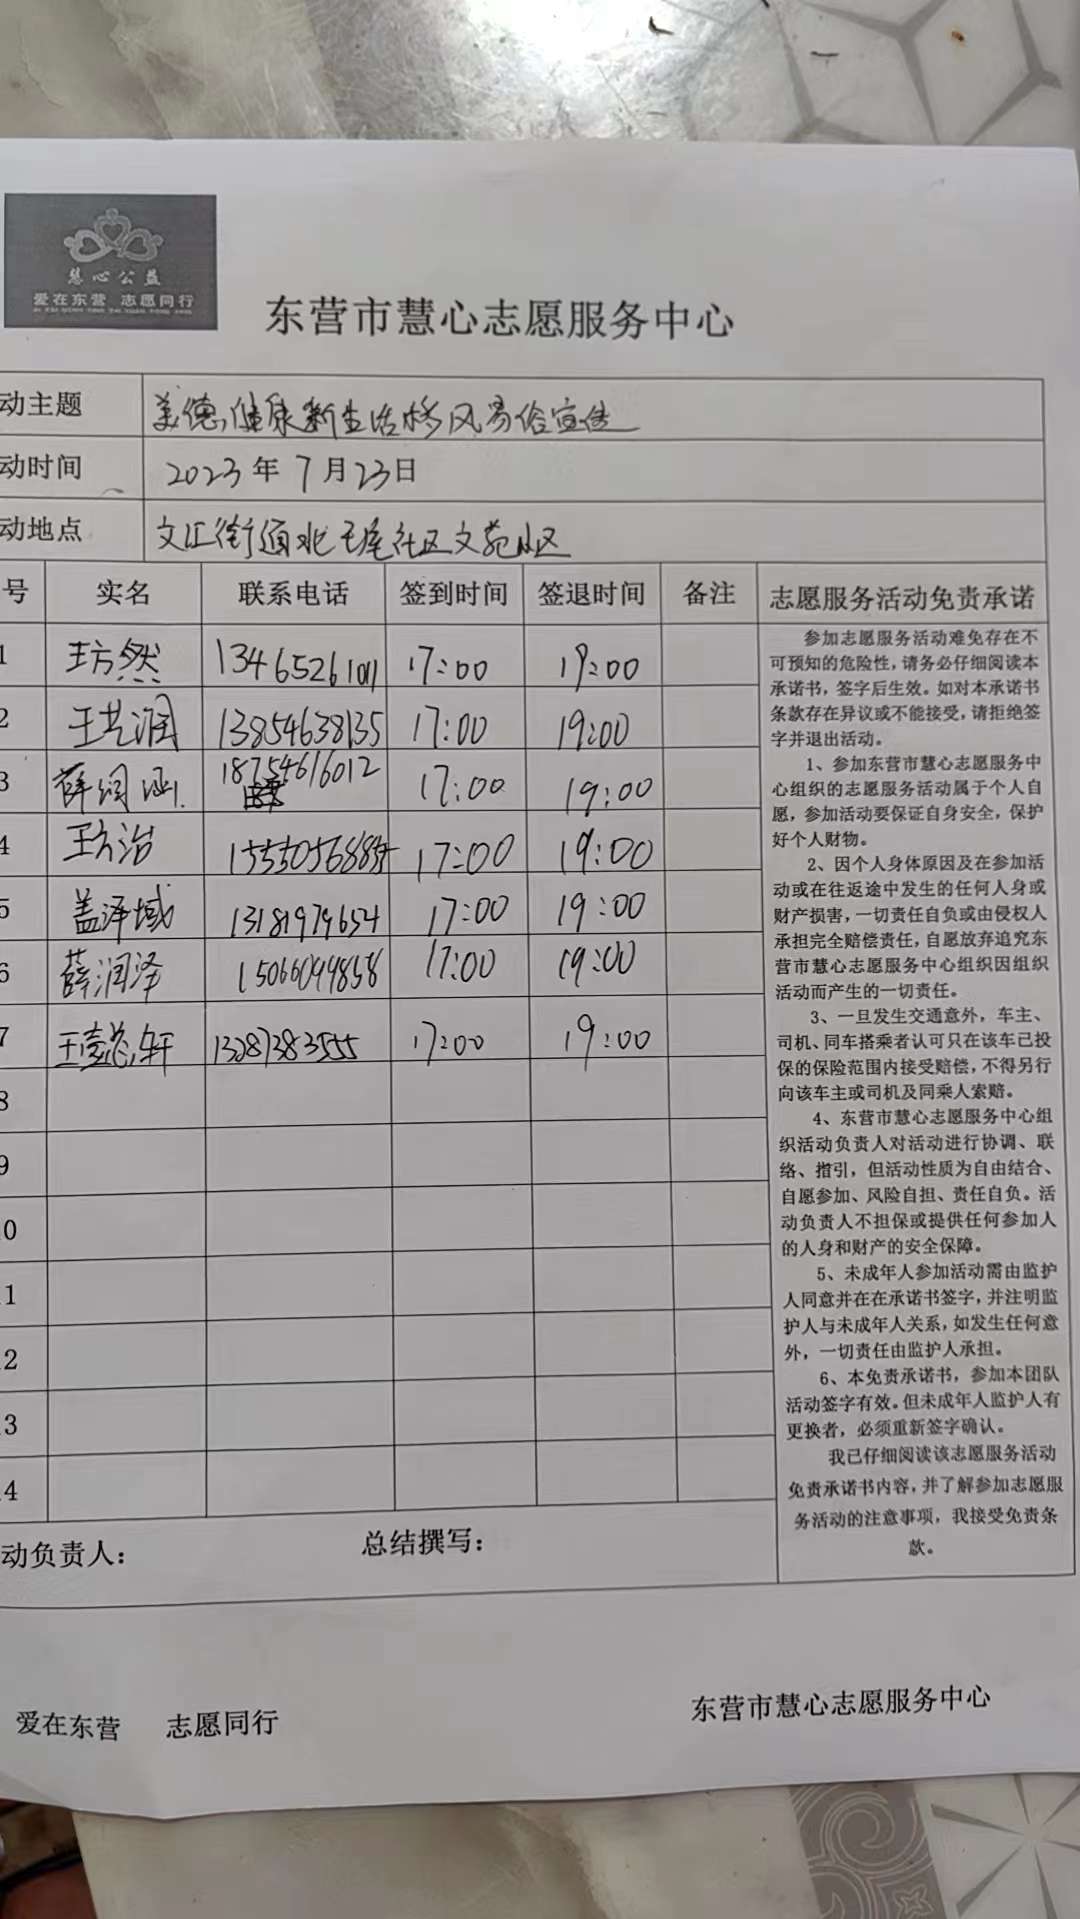 慧心公益
爱在东营 志愿同行
东营市慧心志愿服务中心
动主题 美德健康新生活移风易俗宣传
动时间 2023年7月23日
动地点 文汇街道北王屋社区文苑小区
号 实名 联系电话 签到时间 签退时间 备注 志愿服务活动免责承诺
1 王方然 13465261011 17:00 19:00
2 王艺润 13854638135 17:00 19:00
3 薛润涵 18754616012 17:00 19:00
4 王方治 17:00 19:00
5 盖泽域 13181979654 17:00 19:00
6 薛润泽 15066099858 17:00 19:00
7 轩 13287383555 17:00 19:00
8
9
0
1
2
3
4
参加志愿服务活动难免存在不
可预知的危险性，请务必仔细阅读本
承诺书，签字后生效。如对本承诺书
条款存在异议或不能接受，请拒绝签
字并退出活动。
1、参加东营市慧心志愿服务中
心组织的志愿服务活动属于个人自
愿，参加活动要保证自身安全，保护
好个人财物。
2、因个人身体原因及在参加活
动或在往返途中发生的任何人身或
财产损害，一切责任自负或由侵权人
承担完全赔偿责任，自愿放弃追究东
营市慧心志愿服务中心组织因组织
活动而产生的一切责任。
3、一旦发生交通意外，车主、
司机、同车搭乘者认可只在该车已投
保的保险范围内接受赔偿，不得另行
向该车主或司机及同乘人索赔。
4、东营市慧心志愿服务中心组
织活动负责人对活动进行协调、联
络、指引，但活动性质为自由结合、
自愿参加、风险自担、责任自负。活
动负责人不担保或提供任何参加人
的人身和财产的安全保障。
5、未成年人参加活动需由监护
人同意并在在承诺书签字，并注明监
护人与未成年人关系，如发生任何意
外，一切责任由监护人承担。
6、本免责承诺书，参加本团队
活动签字有效。但未成年人监护人有
更换者，必须重新签字确认。
我已仔细阅读该志愿服务活动
免责承诺书内容，并了解参加志愿服
务活动的注意事项，我接受免责条
款。
动负责人： 总结撰写：
爱在东营 志愿同行 东营市慧心志愿服务中心